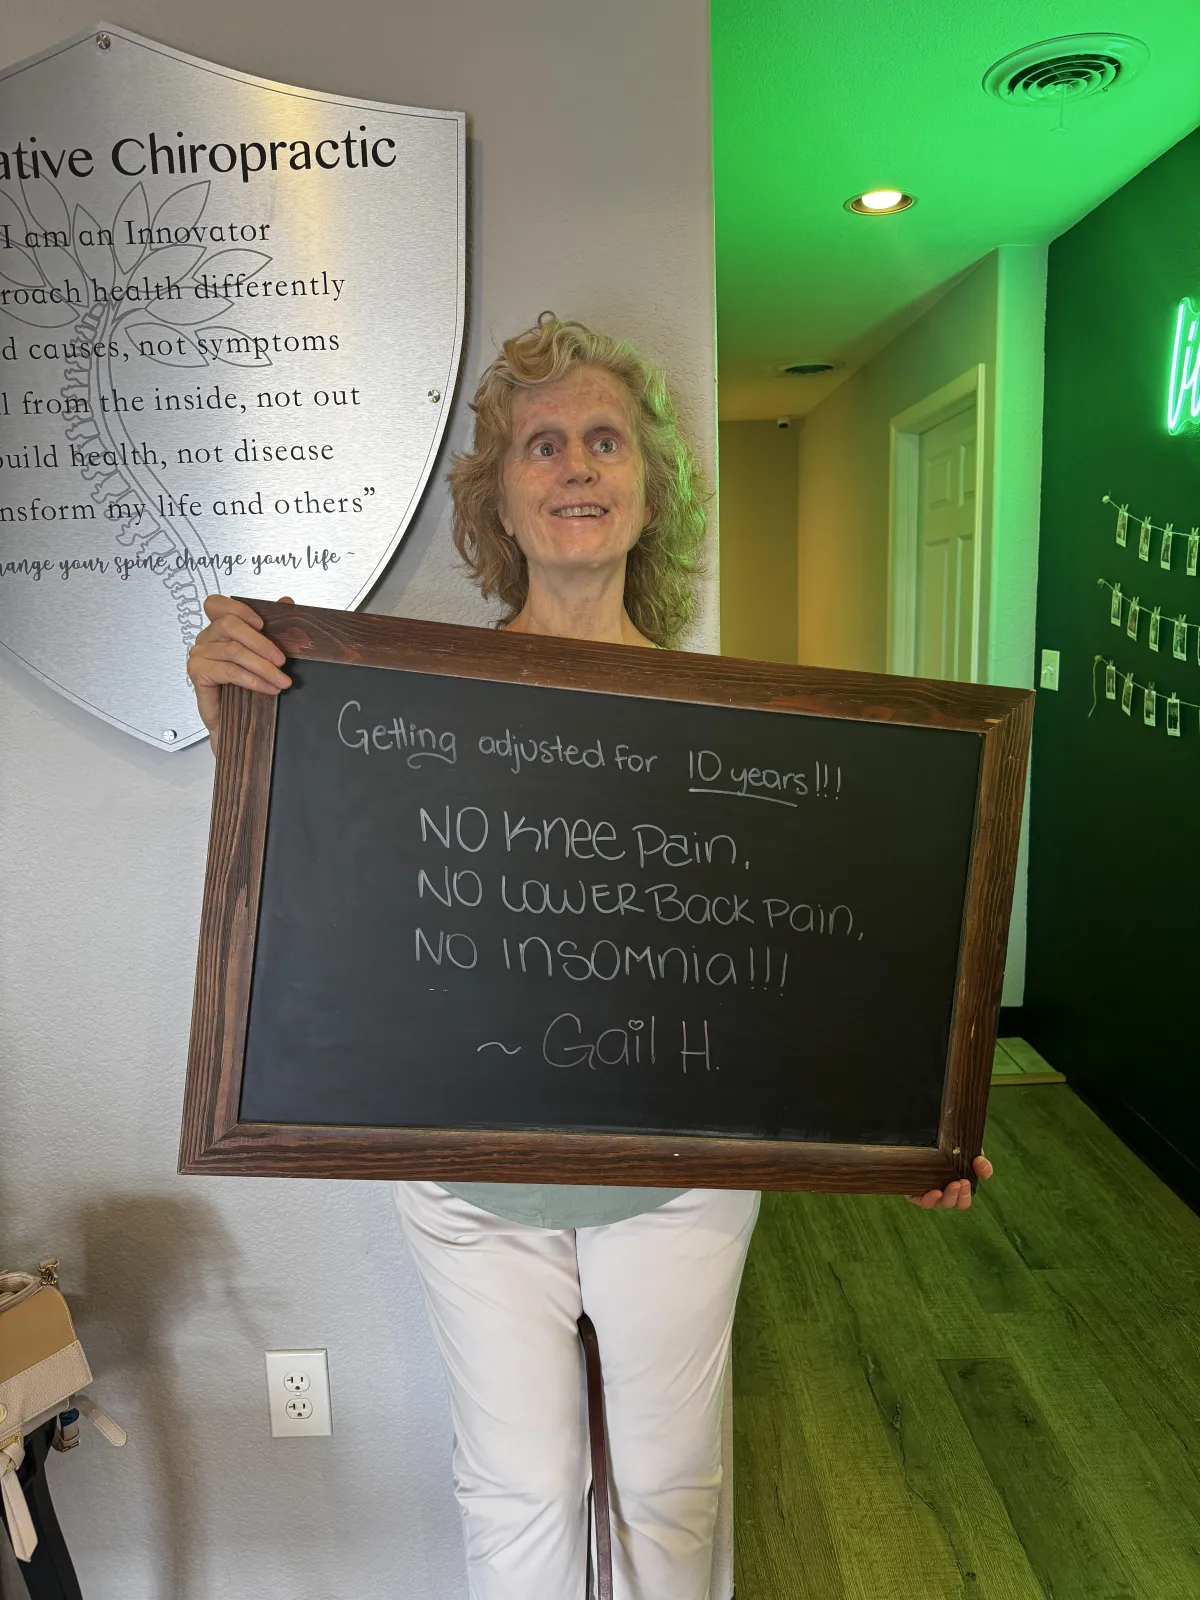 ative Chiropractic
I am an Innovator
roach health differently
d causes, not symptoms
l from the inside, not out
build health, not disease
nsform my life and others”
hange your spine, change your life ~
Getting adjusted for 10 years!!!
NO Knee Pain,
NO LOWER Back Pain,
NO Insomnia!!!
~ Gail H.